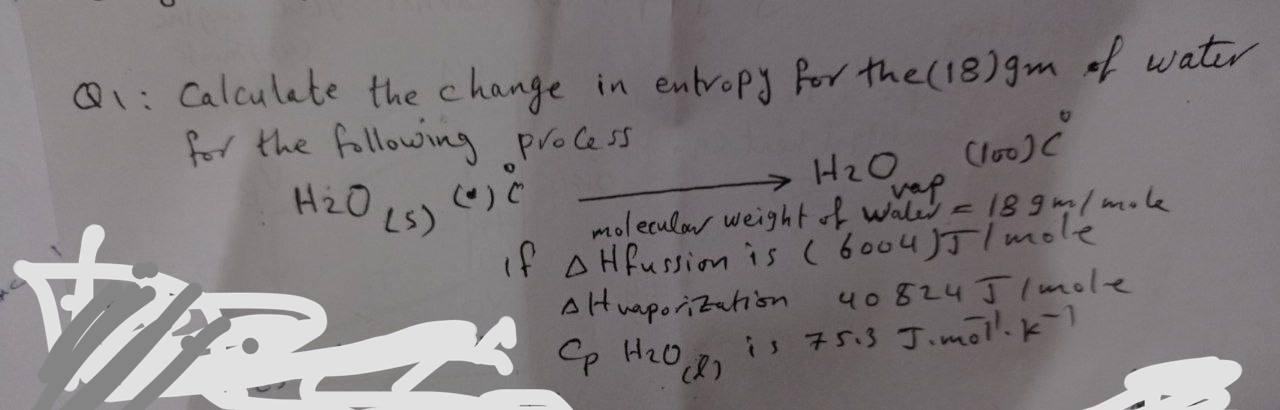 Q1: Calculate the change in entropy for the (18) gm of water
for the following process
H2O (s) (0) C° → H2O vap (100) C°
molecular weight of water = 18 gm/mole
if ΔHfussion is (6004) J/mole
ΔHvaporization 40824 J/mole
Cp H2O(l) is 75.3 J.mol⁻¹.k⁻¹